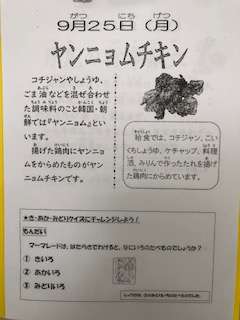 9月25日（月）
がつ にち げつ
ヤンニョムチキン
コチジャンやしょうゆ、
ごま油などを混ぜ合わせ
た調味料のこと韓国・朝
鮮では『ヤンニョム』とい
います。
揚げた鶏肉にヤンニョ
ムをからめたものがヤン
ニョムチキンです。
給食では、コチジャン、こい
くちしょうゆ、ケチャップ、料理
酒、みりんで作ったたれを揚げ
た鶏肉にからめています。
★き・あか・みどりクイズにチャレンジしよう！
もんだい
マーマレードは、はたらきでわけると、なにいろのたべものでしょうか？
① きいろ
② あかいろ
③ みどりいろ